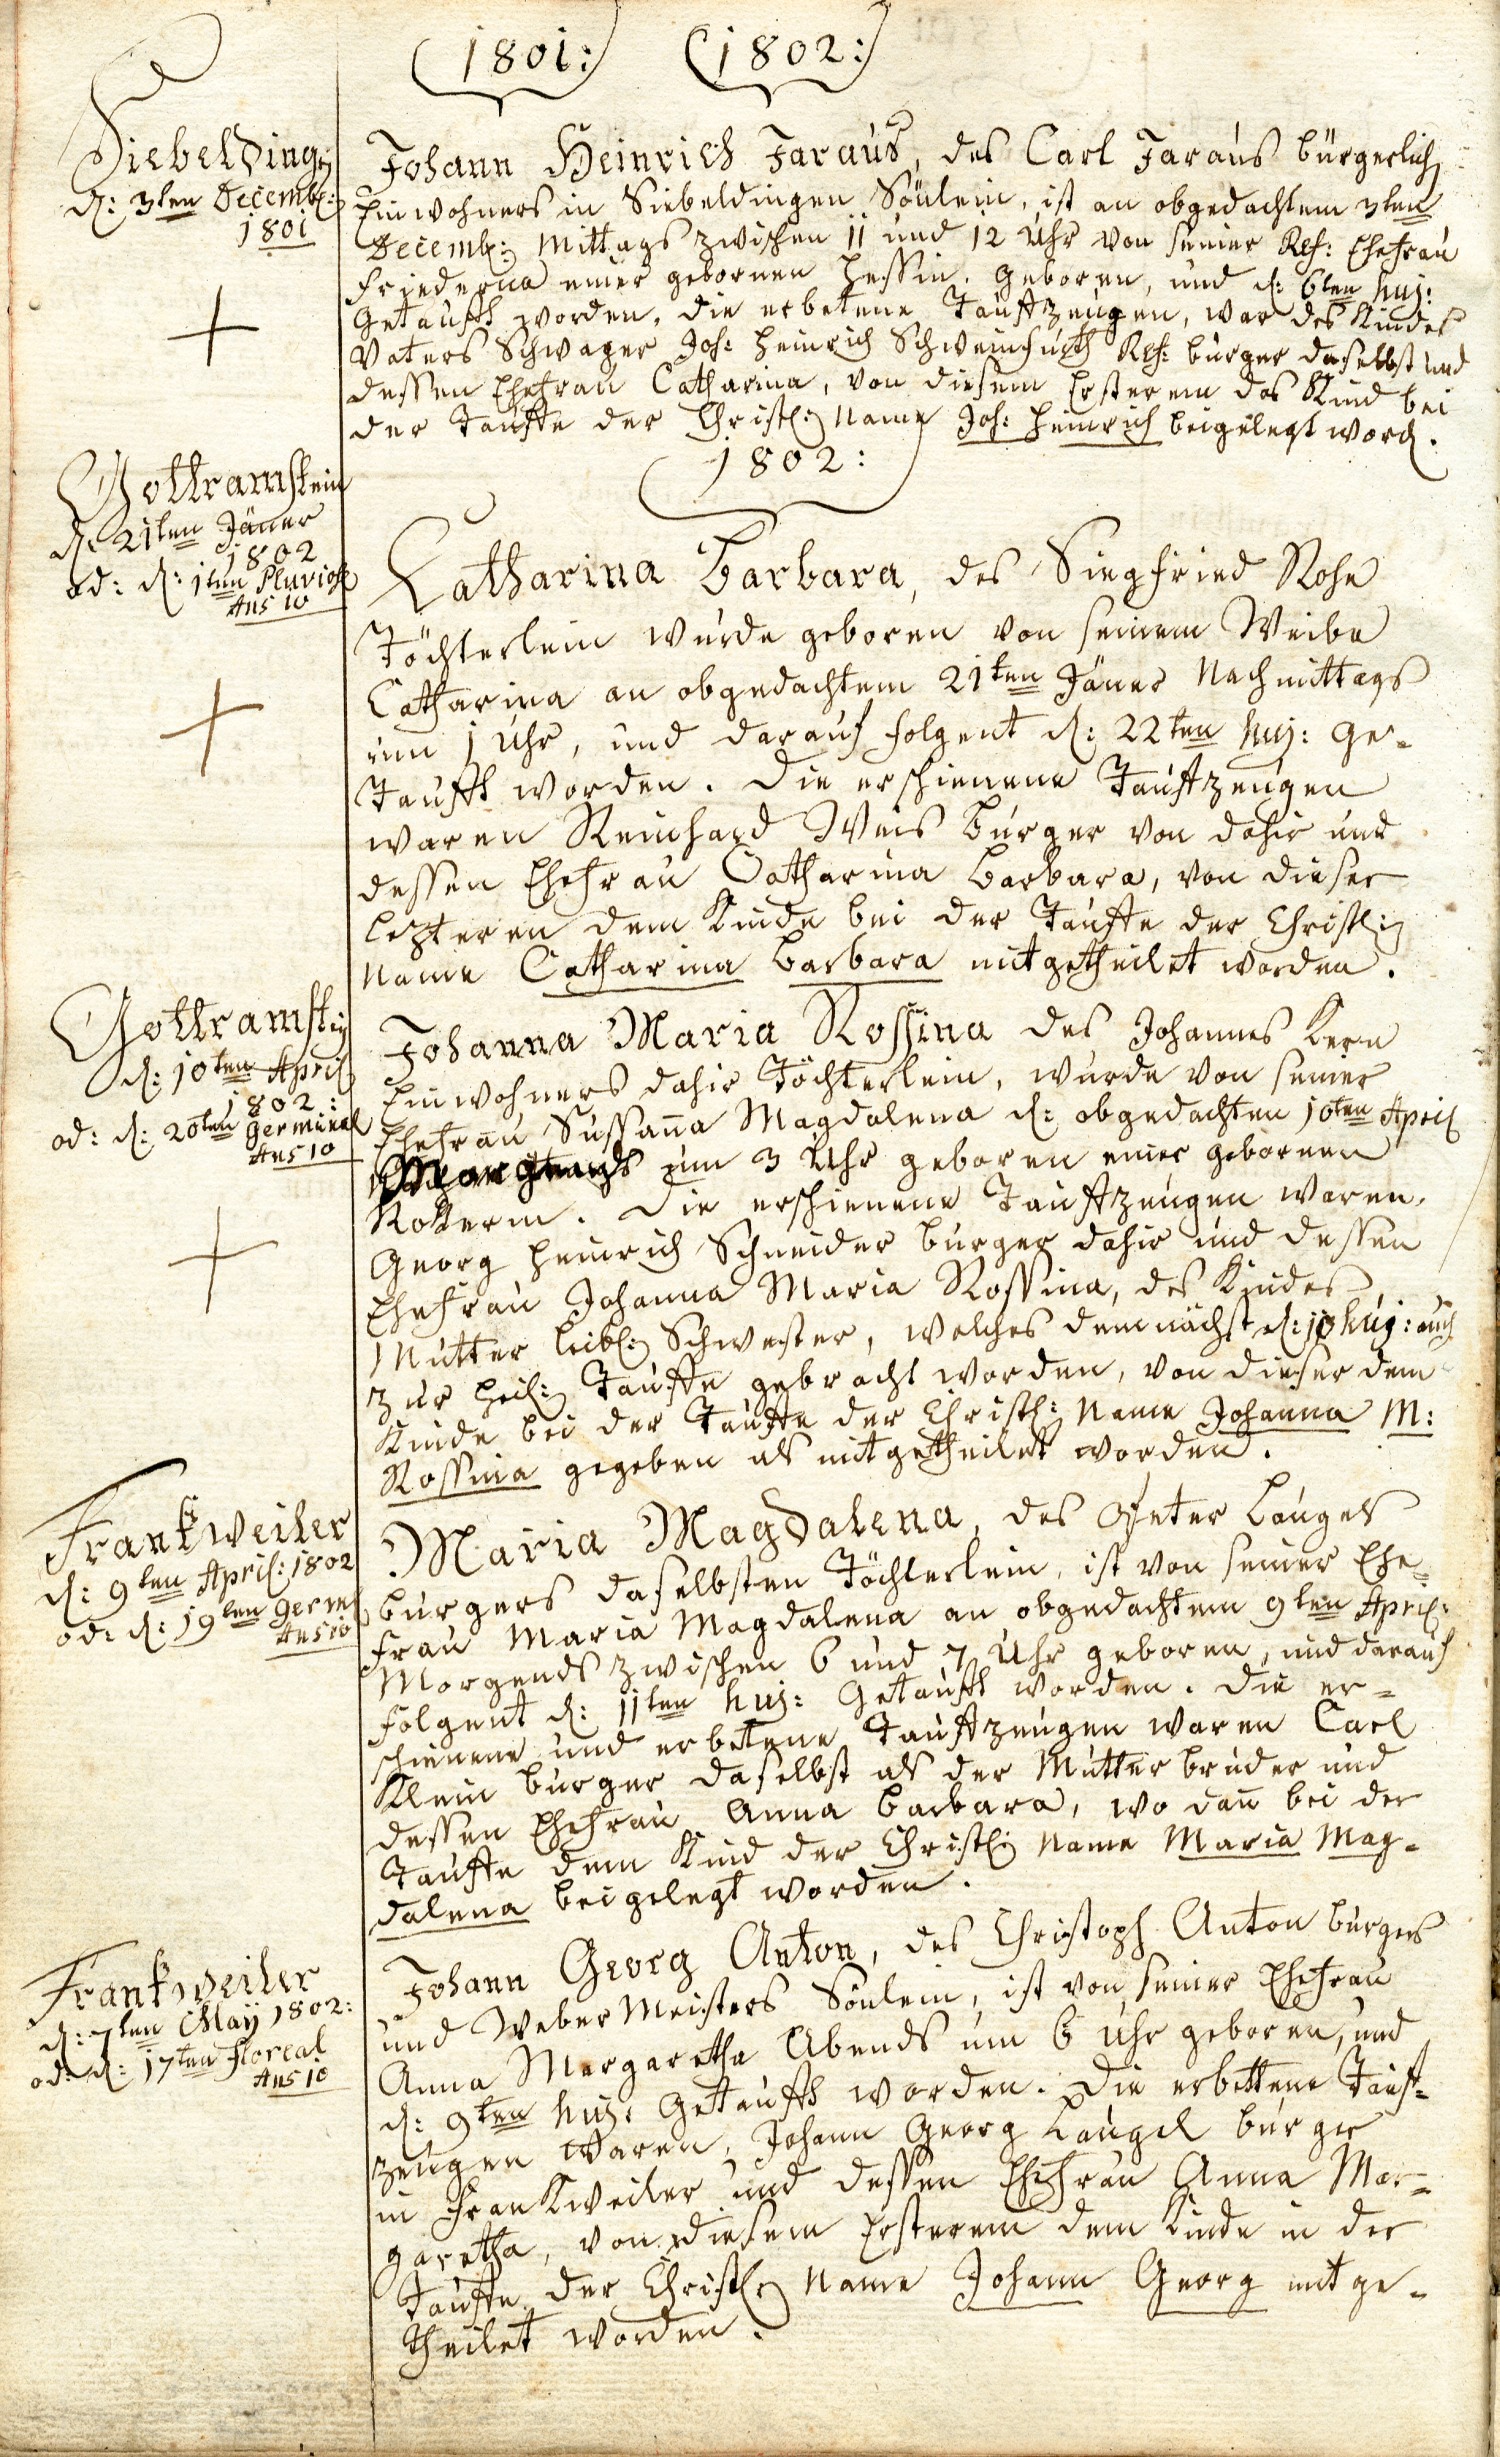 1801: 1802:
Siebelding:
d: 3ten Decemb:
1801
Johann Heinrich Faraus, des Carl Faraus bürgerlich:
Einwohners in Siebeldingen Söhnlein, ist an obgedachtem 3ten
Decemb: Mittags zwischen 11 und 12 Uhr von seiner Ref: Ehefrau
Friederica einer gebornen Hessin, geboren, und d: 6ten huj:
Getaufft worden. die erbetene Tauffzeugen, war des Kindes
Vaters Schwager Joh: Heinrich Schweinfurth Ref: bürger daselbst und
dessen Ehefrau Catharina, von diesem Ersterem das Kind bei
der Tauffe der Christl: Name Joh: Heinrich beigelegt word.
1802:
Gottramstein
d: 21ten Jäner
1802
od: d: 1ten Pluvios
Ans 10
Catharina Barbara, des Siegfried Rohe
Töchterlein wurde geboren von seinem Weibe
Catharina an obgedachtem 21ten Jäner Nachmittags
um 1 Uhr, und darauf folgent d: 22ten huj: ge-
Taufft worden. Die erschienene Tauffzeugen
waren Reinhard Weis Bürger von dahir und
dessen Ehefrau Catharina Barbara, von dieser
lezteren dem Kinde bei der Tauffe der Christl:
Name Catharina Barbara mitgetheilet worden.
Gottramstein
d: 10ten April
1802:
od: d: 20ten Germinal
Ans 10
Johanna Maria Rossina des Johannes Kern
Einwohners dahir Töchterlein, wurde von seiner
Ehefrau Sussana Magdalena d: obgedachten 10ten April
um 3 Uhr geboren einer gebornen
Die erschienene Tauffzeugen waren,
Georg Heinrich Schneider bürger dahir und dessen
Ehefrau Johanna Maria Rossina, des Kindes
Mutter leibl: Schwester, welches demnächst d: huj: auch
zur Heil: Tauffe gebracht worden, von dieser dem
Kinde bei der Tauffe der Christl: Name Johanna M:
Rossina gegeben als mitgetheilet worden.
Frankweiler
d: 9ten April: 1802
od: d: 19ten Germ
Ans 10
Maria Magdalena, des Peter Laugels
bürgers daselbsten Töchterlein, ist von seiner Ehe-
frau Maria Magdalena an obgedachtem 9ten April:
Morgends zwischen 6 und 7 Uhr geboren, und darauf
folgent d: 11ten huj: Getaufft worden. Die er-
schienene und erbetene Tauffzeugen waren Carl
Klein bürger daselbst als der Mutter bruder und
dessen Ehefrau Anna Barbara, wo dan bei der
Tauffe dem Kind der Christl: Name Maria Mag-
dalena beigelegt worden.
Frankweiler
d: 7ten May 1802:
od: d: 17ten Floreal
Ans 10
Johann Georg Anton, des Christoph Anton bürgers
und Weber Meisters Sönlein, ist von seiner Ehefrau
Anna Margaretha Abends um 6 Uhr geboren, und
d: 9ten huj: Getaufft worden. Die erbettene Tauf-
zeugen waren, Johann Georg Laugel bürger
in Frankweiler und dessen Ehefrau Anna Mar-
garetha, von diesem Ersterem dem Kinde in der
Tauffe der Christl: Name Johann Georg mitge-
theilet worden.